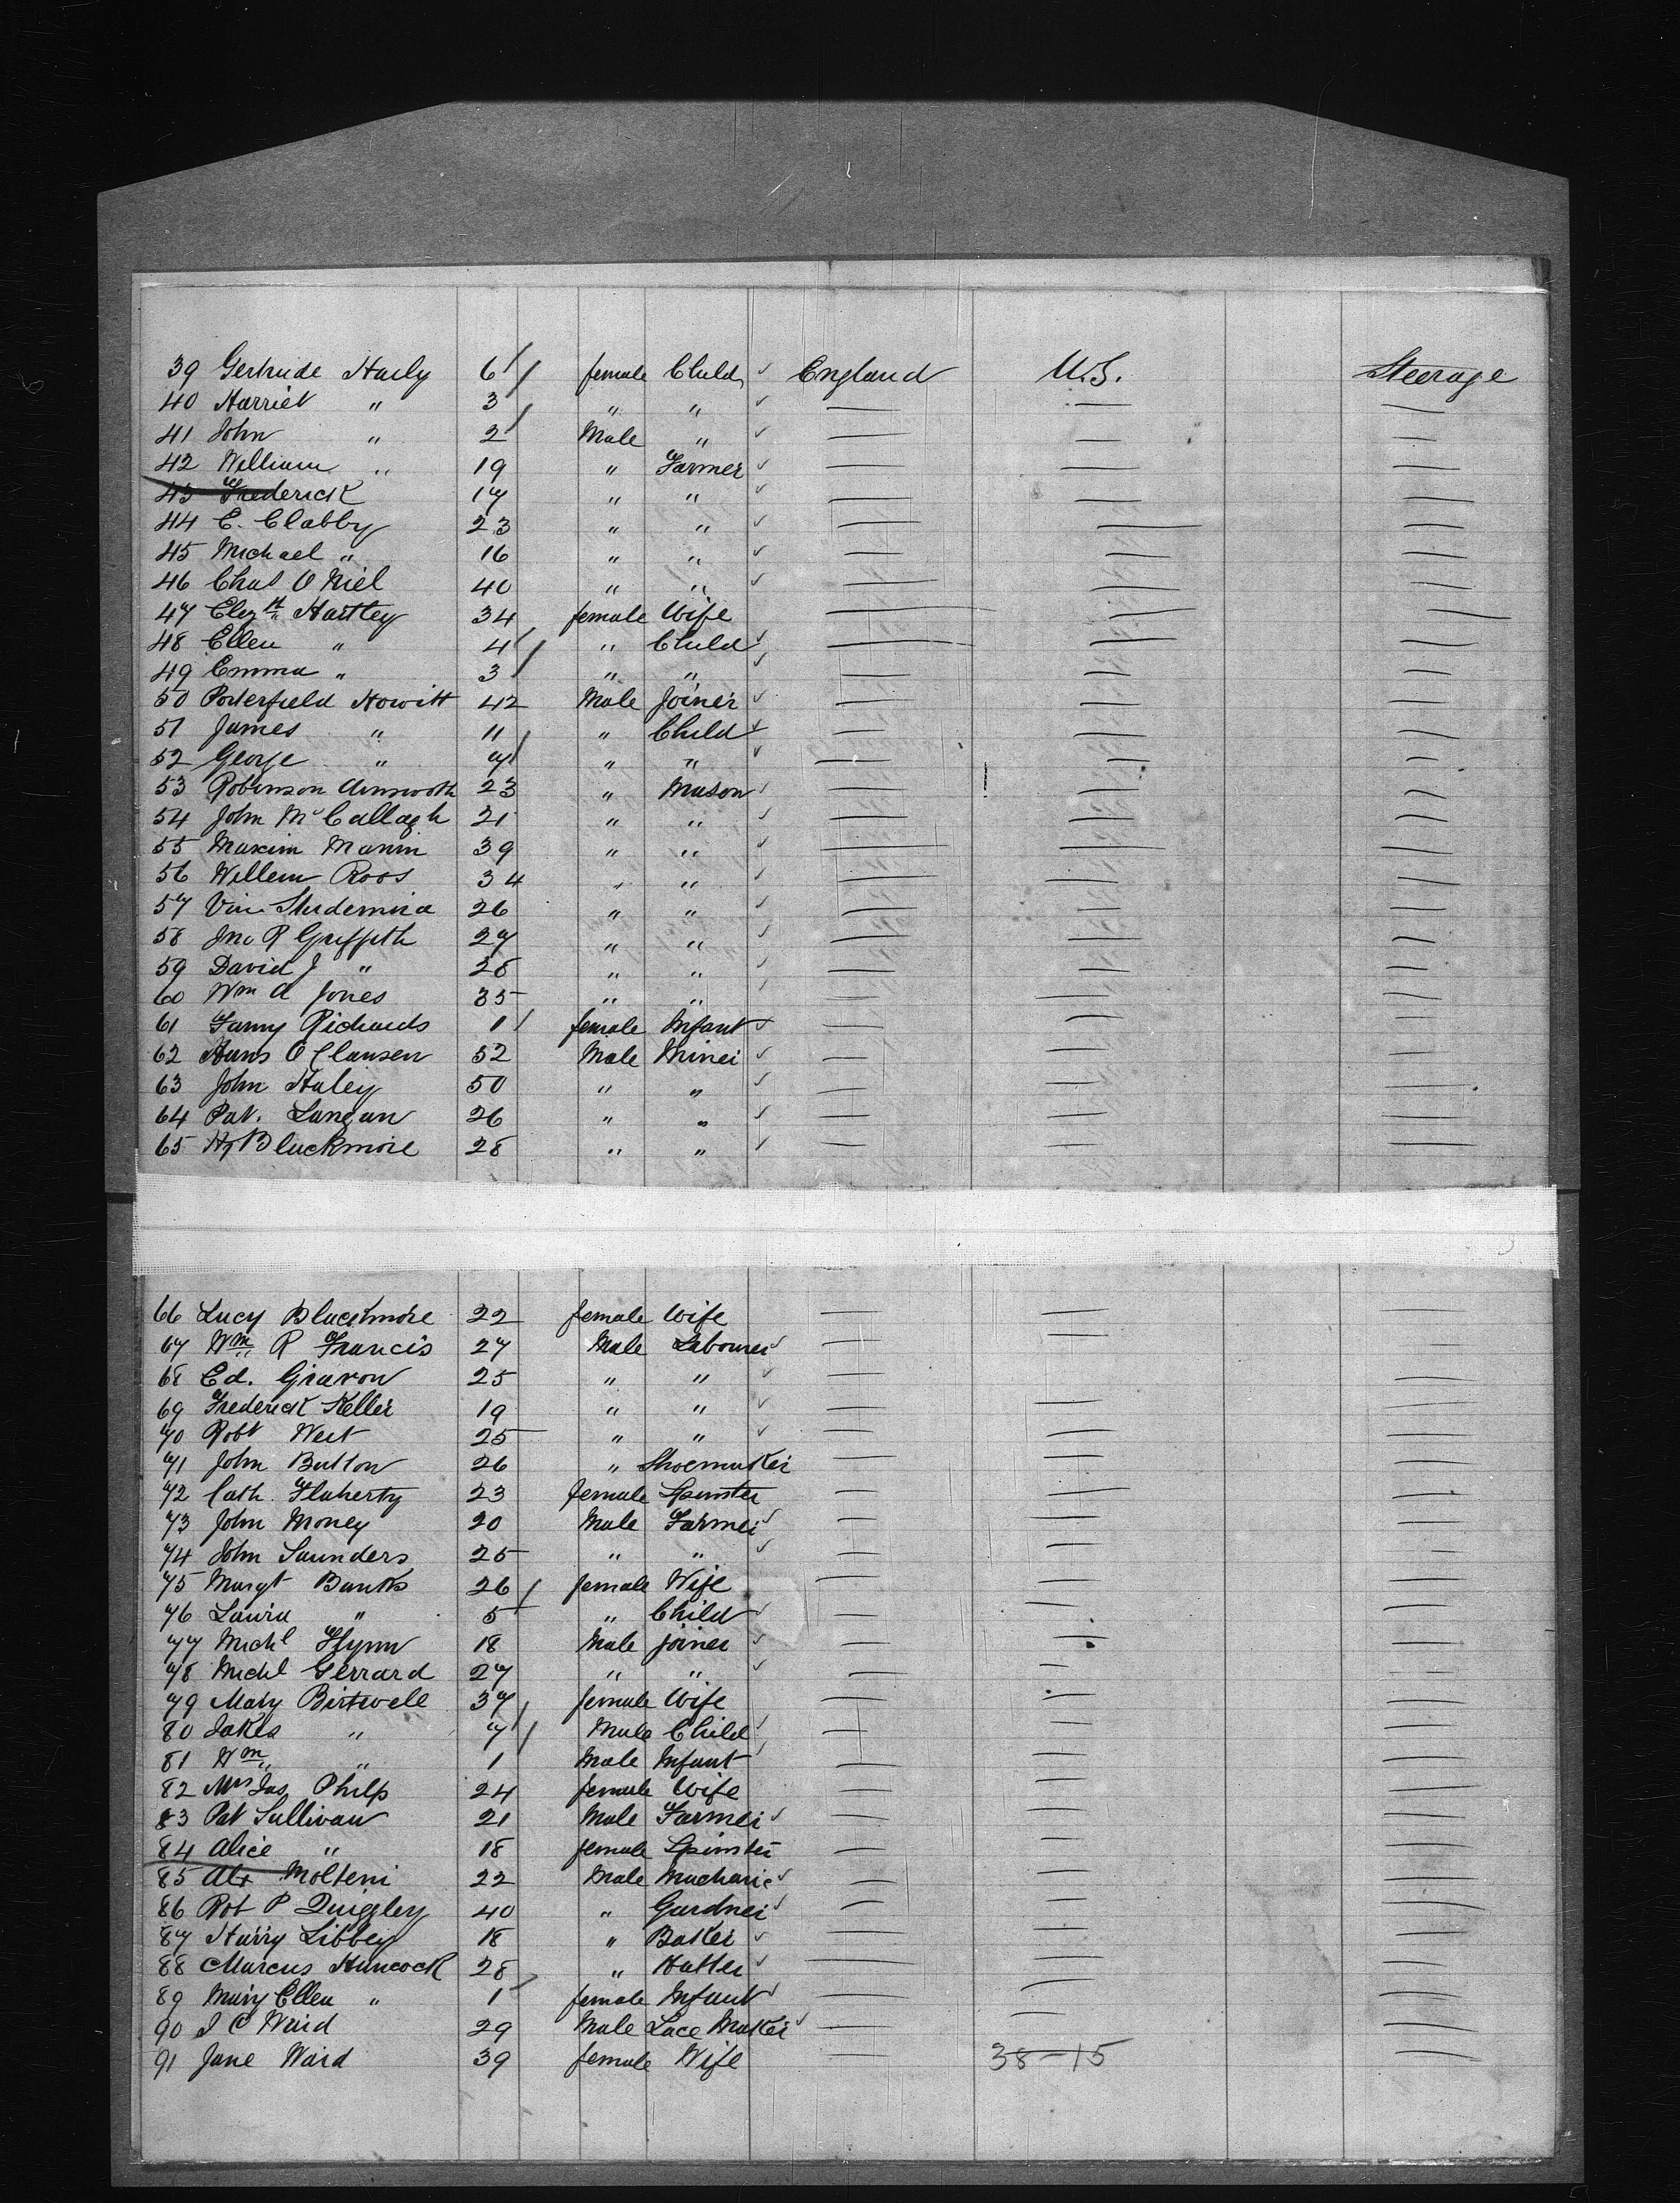 39 Gertrude Haily 6 female Child England U.S. Steerage
40 Harriet " 3 " "
41 John " 2 Male "
42 William " 19 " Farmer
43 Frederick 17 " "
44 E. Clabby 23 " "
45 Michael " 16 " "
46 Chas O Niel 40 " "
47 Elizth Hartley 34 female Wife
48 Ellen " 4 " Child
49 Emma " 3 " "
50 Porterfield Howitt 42 Male Joiner
51 James " 11 " Child
52 George " 7 " "
53 Robinson Ainsworth 23 " Mason
54 John McCallagh 21 " "
55 Maxim Manin 39 " "
56 Willem Roos 34 " "
57 26 " "
58 Jno R Griffith 27 " "
59 David J " 28 " "
60 Wm A Jones 35 " "
61 Fanny Richards 1 female Infant
62 Hans O Clausen 52 Male Miner
63 John Haley 50 " "
64 Pat. Langan 26 " "
65 Hy Blackmore 28 " "
66 Lucy Blackmore 22 female Wife
67 Wm R Francis 27 Male Labourer
68 Ed. Giavon 25 " "
69 Frederick Keller 19 " "
70 Robt West 25 " "
71 John Button 26 " Shoemaker
72 Cath. Flaherty 23 female Spinster
73 John Money 20 Male Farmer
74 John Saunders 25 " "
75 Margt Banks 26 female Wife
76 Laura " 5 " Child
77 Michl Flynn 18 Male joiner
78 Michl Gerrard 27 " "
79 Mary Birtwell 37 female Wife
80 Jakes " 7 Male Child
81 Wm " 1 Male Infant
82 Mrs Jas Philp 24 female Wife
83 Pat Sullivan 21 Male Farmer
84 Alice " 18 female Spinster
85 Alx Molteni 22 Male Machanic
86 Rob P Quiggley 40 " Gardner
87 Harry Libbey 18 " Baker
88 Marcus Hancock 28 " Hatter
89 Mary Ellen " 1 female Infant
90 J C Ward 29 Male Lace Maker
91 Jane Ward 39 female Wife 38-15